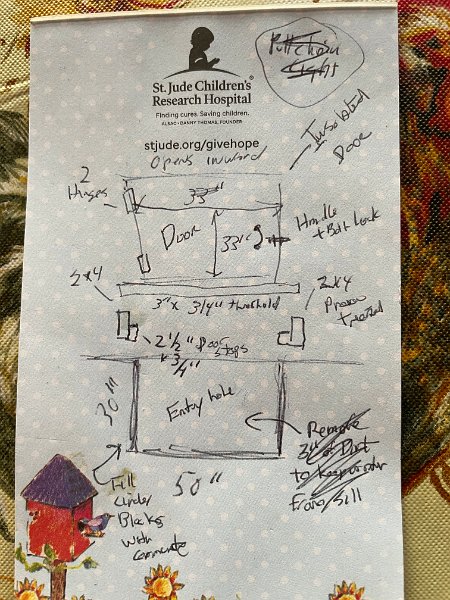 St. Jude Children's
Research Hospital
Finding cures. Saving children.
ALSAC • DANNY THOMAS, FOUNDER
stjude.org/givehope
Pull Chain
Light
Opens inward
Insolated
Door
2
Hinges
33"
Door
33"
Handle
+ Bolt Lock
2x4
3" x 3/4" threshold
2x4
Pressure
Treated
2 1/2" Door
Stops
x 3/4"
30"
Entry hole
Remove
3" of Dirt
to keep water
From Sill
50"
Fill
Cinder
Blocks
with